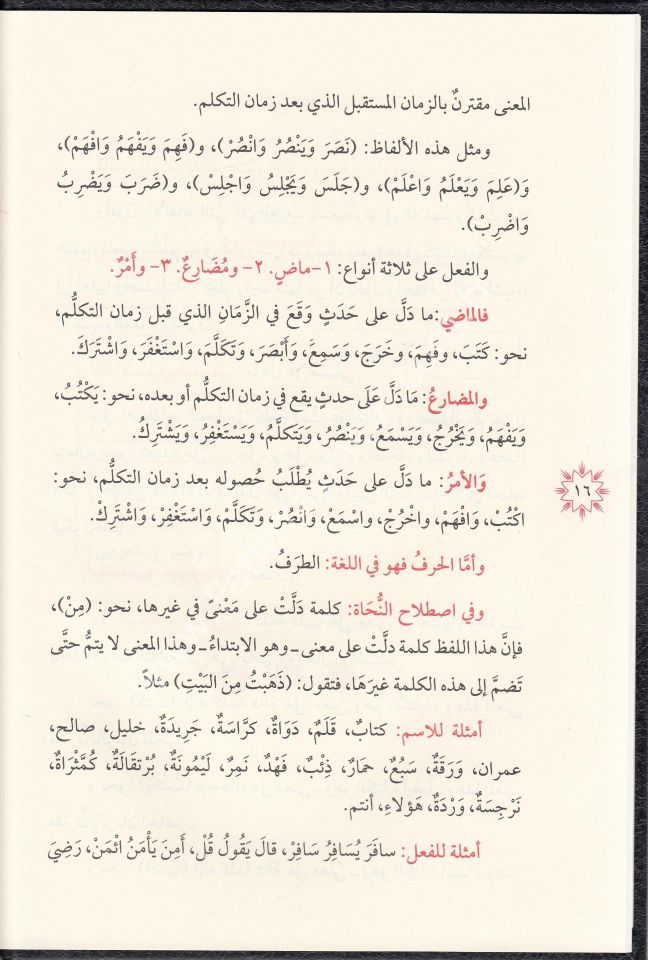 المعنى مقترنٌ بالزمان المستقبل الذي بعد زمان التكلم.
ومثل هذه الألفاظ: (نَصَرَ وَيَنْصُرُ وَانْصُرْ)، و(فَهِمَ وَيَفْهَمُ وَافْهَمْ)،
وَ(عَلِمَ وَيَعْلَمُ وَاعْلَمْ)، و(جَلَسَ وَيَجْلِسُ وَاجْلِسْ)، و(ضَرَبَ وَيَضْرِبُ
وَاضْرِبْ).
والفعل على ثلاثة أنواع: ١-ماضٍ. ٢- ومُضَارِعٌ. ٣- وأَمْرٌ.
فالماضي: ما دَلَّ على حَدَثٍ وَقَعَ في الزَّمَانِ الذي قبل زمان التكلُّم،
نحو: كَتَبَ، وفَهِمَ، وخَرَجَ، وَسَمِعَ، وَأَبْصَرَ، وَتَكَلَّمَ، وَاسْتَغْفَرَ، وَاشْتَرَكَ.
والمضارعُ: مَا دَلَّ عَلَى حدثٍ يقع في زمان التكلُّم أو بعده، نحو: يَكْتُبُ،
وَيَفْهَمُ، وَيَخْرُجُ، وَيَسْمَعُ، وَيَنْصُرُ، وَيَتكلَّمُ، وَيَسْتَغْفِرُ، وَيَشْتَرِكُ.
وَالأمرُ: ما دَلَّ على حَدَثٍ يُطْلَبُ حُصوله بعد زمان التكلُّم، نحو:
اكْتُبْ، وَافْهَمْ، واخْرُجْ، واسْمَعْ، وَانْصُرْ، وَتَكَلَّمْ، وَاسْتَغْفِرْ، وَاشْتَرِكْ.
١٦
وأمَّا الحرفُ فهو في اللغة: الطرَفُ.
وفي اصطلاح النُّحَاة: كلمة دَلَّتْ على مَعْنىً في غيرها، نحو: (مِنْ)،
فإنَّ هذا اللفظ كلمة دلَّتْ على معنى ـ وهو الابتداءُ ـ وهذا المعنى لا يتمُّ حتَّى
تَضمَّ إلى هذه الكلمة غيرَهَا، فتقول: (ذَهَبْتُ مِنَ البَيْتِ) مثلاً.
أمثلة للاسم: كتابٌ، قَلَمٌ، دَوَاةٌ، كرَّاسَةٌ، جَرِيدَةٌ، خليل، صالح،
عمران، وَرَقَةٌ، سَبُعٌ، حمَارٌ، ذِئْبٌ، فَهْدٌ، نَمِرٌ، لَيْمُونَةٌ، بُرْتقَالَةٌ، كُمَّثْرَاةٌ،
نَرْجِسَةٌ، وَرْدَةٌ، هَؤلاءِ، أنتم.
أمثلة للفعل: سافَرَ يُسَافِرُ سَافِرْ، قالَ يَقُولُ قُلْ، أَمِنَ يَأْمَنُ ائْمَنْ، رَضِيَ